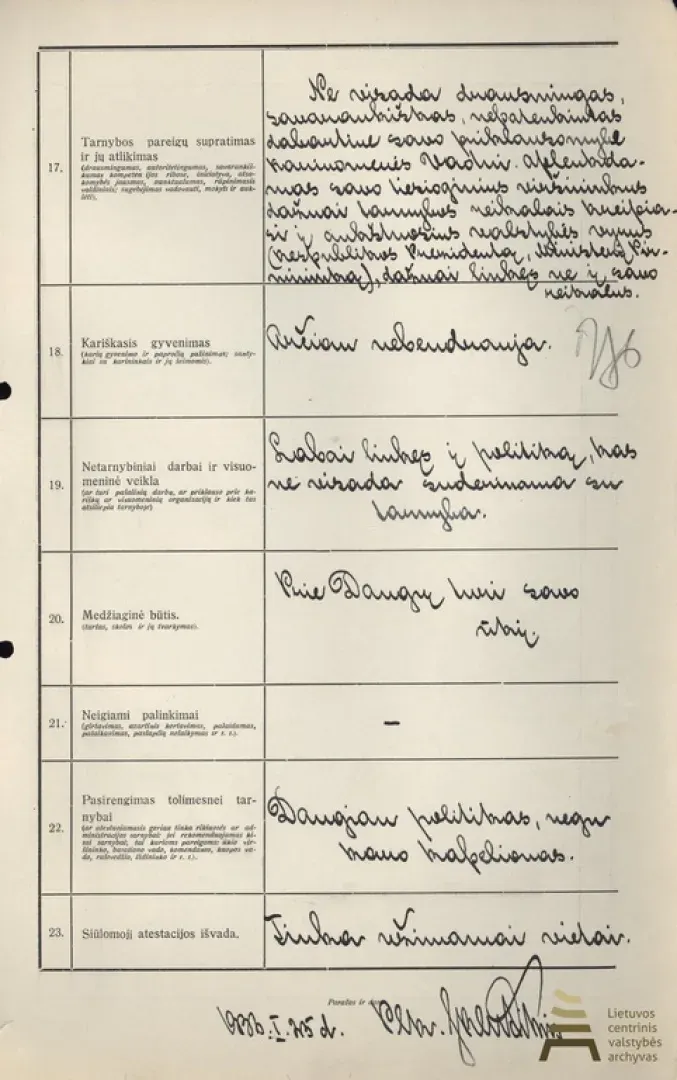 17.
Tarnybos pareigų supratimas
ir jų atlikimas
(drausmingumas, autoritetingumas, savarankiš-
kumas kompetencijos ribose, iniciatyva, atsa-
komybės jausmas, punktualumas, rūpinimasis
valdiniais; sugebėjimas vadovauti, mokyti ir auk-
lėti).
Ne visada drausmingas,
savarankiškas, nepatenkintas
dabartine savo priklausomybe
kariuomenės Vadui. Aplenkda-
mas savo tiesioginius viršininkus
dažnai tarnybos reikalais kreipia-
si į aukštuosius valstybės vyrus
(Respublikos Prezidentą, Ministerį Pir-
mininką), dažnai linkęs ne į savo
reikalus.
18.
Kariškasis gyvenimas
(karių gyvenimo ir papročių pažinimas; santy-
kiai su karininkais ir jų šeimomis).
Arčiau nebendrauja.
19.
Netarnybiniai darbai ir visuo-
meninė veikla
(ar turi pašalinių darbų, ar priklauso prie ka-
riškų ar visuomeninių organizacijų ir kiek tas
atsiliepia tarnyboje)
Labai linkęs į politiką, kas
ne visada suderinama su
tarnyba.
20.
Medžiaginė būtis.
(turtas, skolos ir jų tvarkymas).
Prie Daugų turi savo
ūkių.
21.
Neigiami palinkimai
(girtavimas, azartinis kortavimas, palaidumas,
pataikavimas, paslapčių nelaikymas ir t. t.).
–
22.
Pasirengimas tolimesnei tar-
nybai
(ar atestuojamasis geriau tinka rikiuotės ar ad-
ministracijos tarnybai; jei rekomenduojamas ki-
tai tarnybai, tai kurioms pareigoms: ūkio vir-
šininko, bataliono vado, komendanto, kuopos va-
do, raštvedžio, iždininko ir t. t.).
Daugiau politikas, negu
karo kapelionas.
23.
Siūlomoji atestacijos išvada.
Tinka užimamai vietai.
Parašas ir data
I. 25 d.
Lietuvos
centrinis
valstybės
archyvas